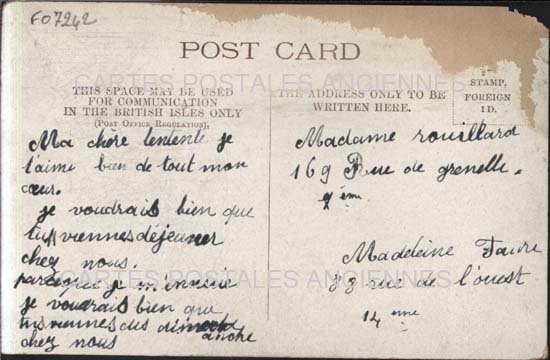 F07242
POST CARD
CARTES POSTALES ANCIENNES
THIS SPACE MAY BE USED
FOR COMMUNICATION
IN THE BRITISH ISLES ONLY
(POST OFFICE REGULATION).
THE ADDRESS ONLY TO BE
WRITTEN HERE.
STAMP,
FOREIGN
1D.
Ma chère tentente je
t'aime bien de tout mon
cœur.
je voudrais bien que
tu viennes déjeuner
chez nous.
parce que je m'ennuie
je voudrais bien que
viennes dimanche
chez nous
Madame rouillard
169 Rue de grenelle.
7 ème
Madeleine Faure
33 rue de l'ouest
14 eme
CARTES POSTALES ANCIENNES